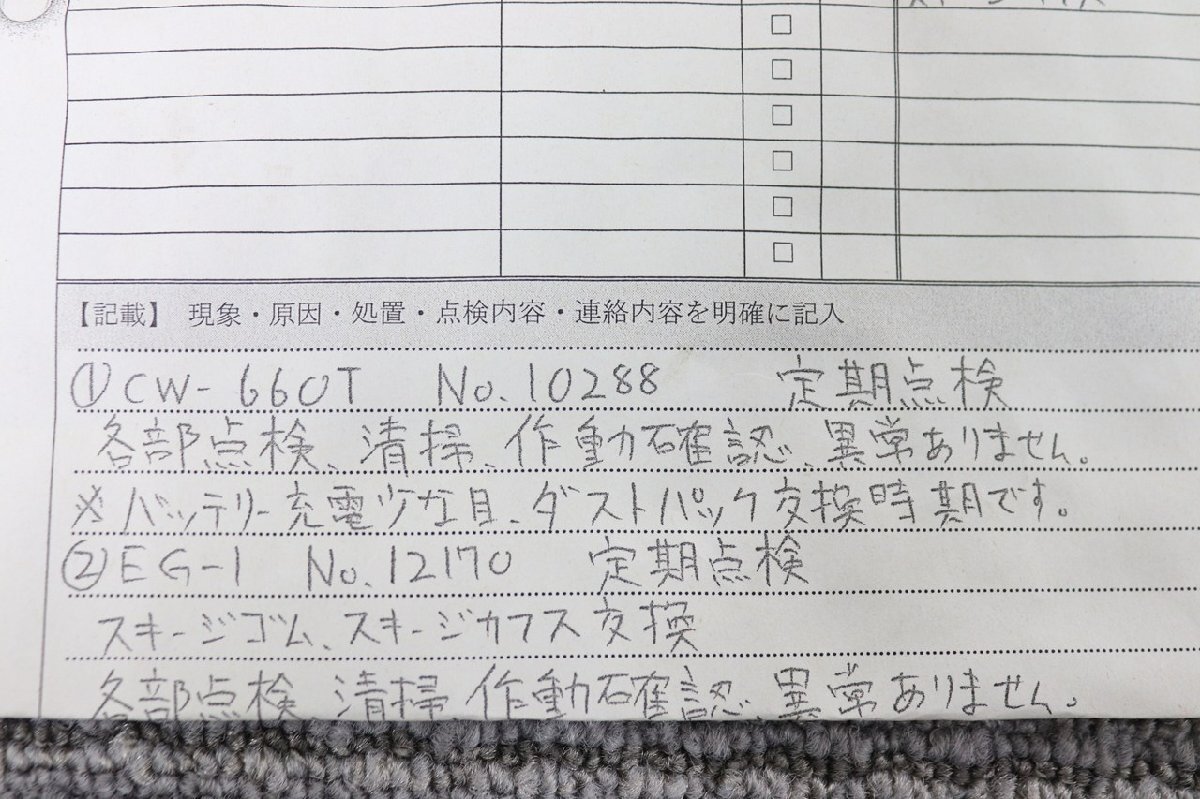 【記載】 現象・原因・処置・点検内容・連絡内容を明確に記入
①CW-660T No.10288 定期点検
各部点検、清掃、作動確認、異常ありません。
※バッテリー充電少な目、ダストパック交換時期です。
②EG-1 No.12170 定期点検
スキージゴム、スキージカフス交換
各部点検、清掃、作動確認、異常ありません。